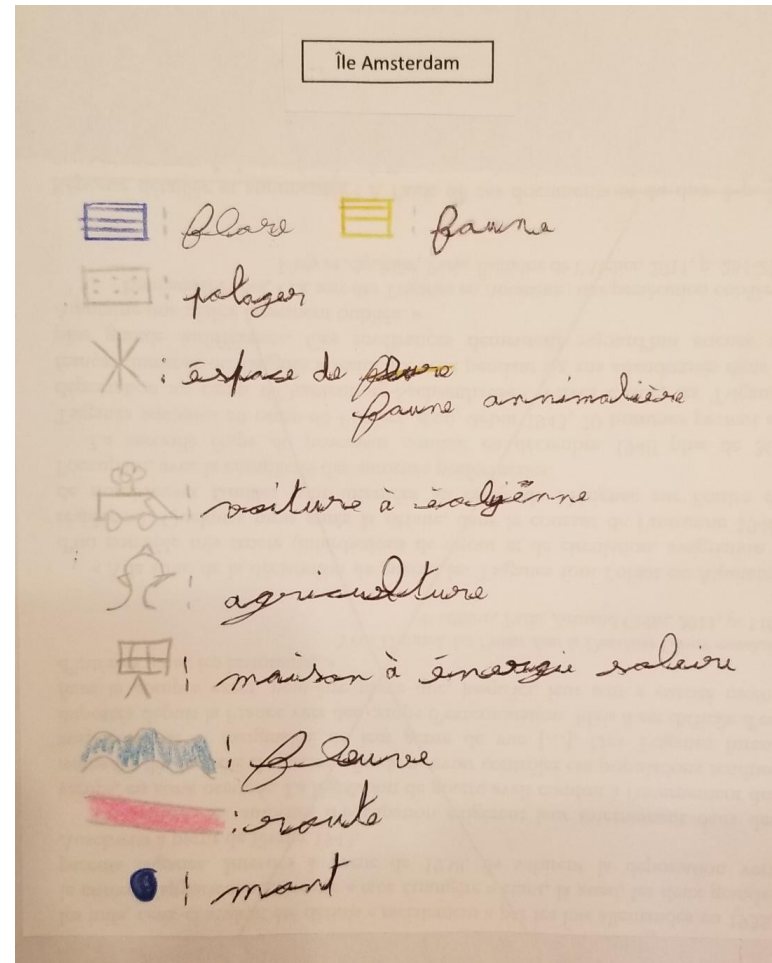 Île Amsterdam
: flore : faune
: potager
: éspace de
faune annimalière
: voiture à éolyènne
: agriculture
: maison à énergie solaire
: fleuve
: route
: mont